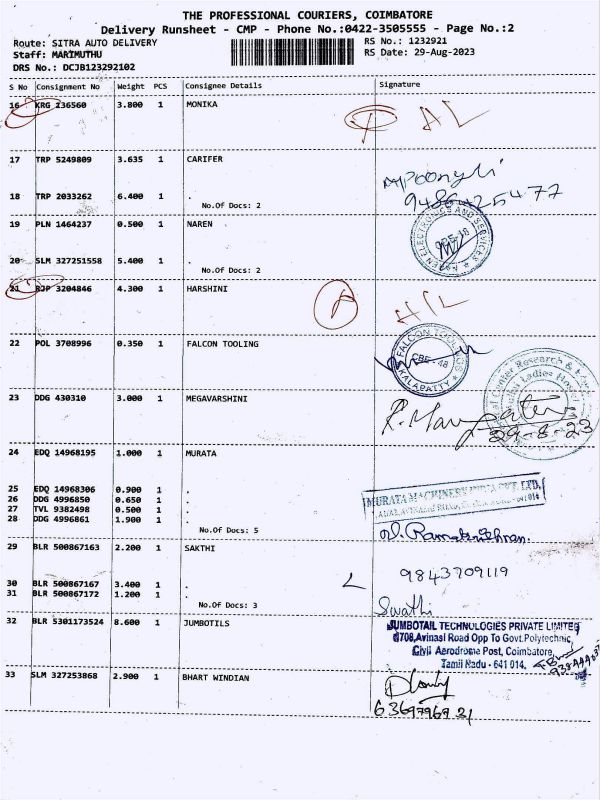 THE PROFESSIONAL COURIERS, COIMBATORE
Delivery Runsheet - CMP - Phone No.:0422-3505555 - Page No.:2
Route: SITRA AUTO DELIVERY RS No.: 1232921
Staff: MARIMUTHU RS Date: 29-Aug-2023
DRS No.: DCJB123292102
S No Consignment No Weight PCS Consignee Details Signature
16 KRG 236560 3.800 1 MONIKA
17 TRP 5249809 3.635 1 CARIFER
18 TRP 2033262 6.400 1 .
No.Of Docs: 2
19 PLN 1464237 0.500 1 NAREN
20 SLM 327251558 5.400 1 .
No.Of Docs: 2
21 RJP 3204846 4.300 1 HARSHINI
22 POL 3708996 0.350 1 FALCON TOOLING
FALCON TOOLINGS
CBE - 48
KALAPATTY
23 DDG 430310 3.000 1 MEGAVARSHINI
29-8-23
24 EDQ 14968195 1.000 1 MURATA
25 EDQ 14968306 0.900 1 .
26 DDG 4996850 0.650 1 .
27 TVL 9382498 0.500 1 .
28 DDG 4996861 1.900 1 .
No.Of Docs: 5
MURATA MACHINERY INDIA PVT. LTD.
29 BLR 500867163 2.200 1 SAKTHI
9843709119
30 BLR 500867167 3.400 1 .
31 BLR 500867172 1.200 1 .
No.Of Docs: 3
Swathi
32 BLR 5301173524 8.600 1 JUMBOTILS
JUMBOTAIL TECHNOLOGIES PRIVATE LIMITED
6708,Avinasi Road Opp To Govt.Polytechnic,
Civil Aerodrome Post, Coimbatore,
Tamil Nadu - 641 014.
33 SLM 327253868 2.900 1 BHART WINDIAN